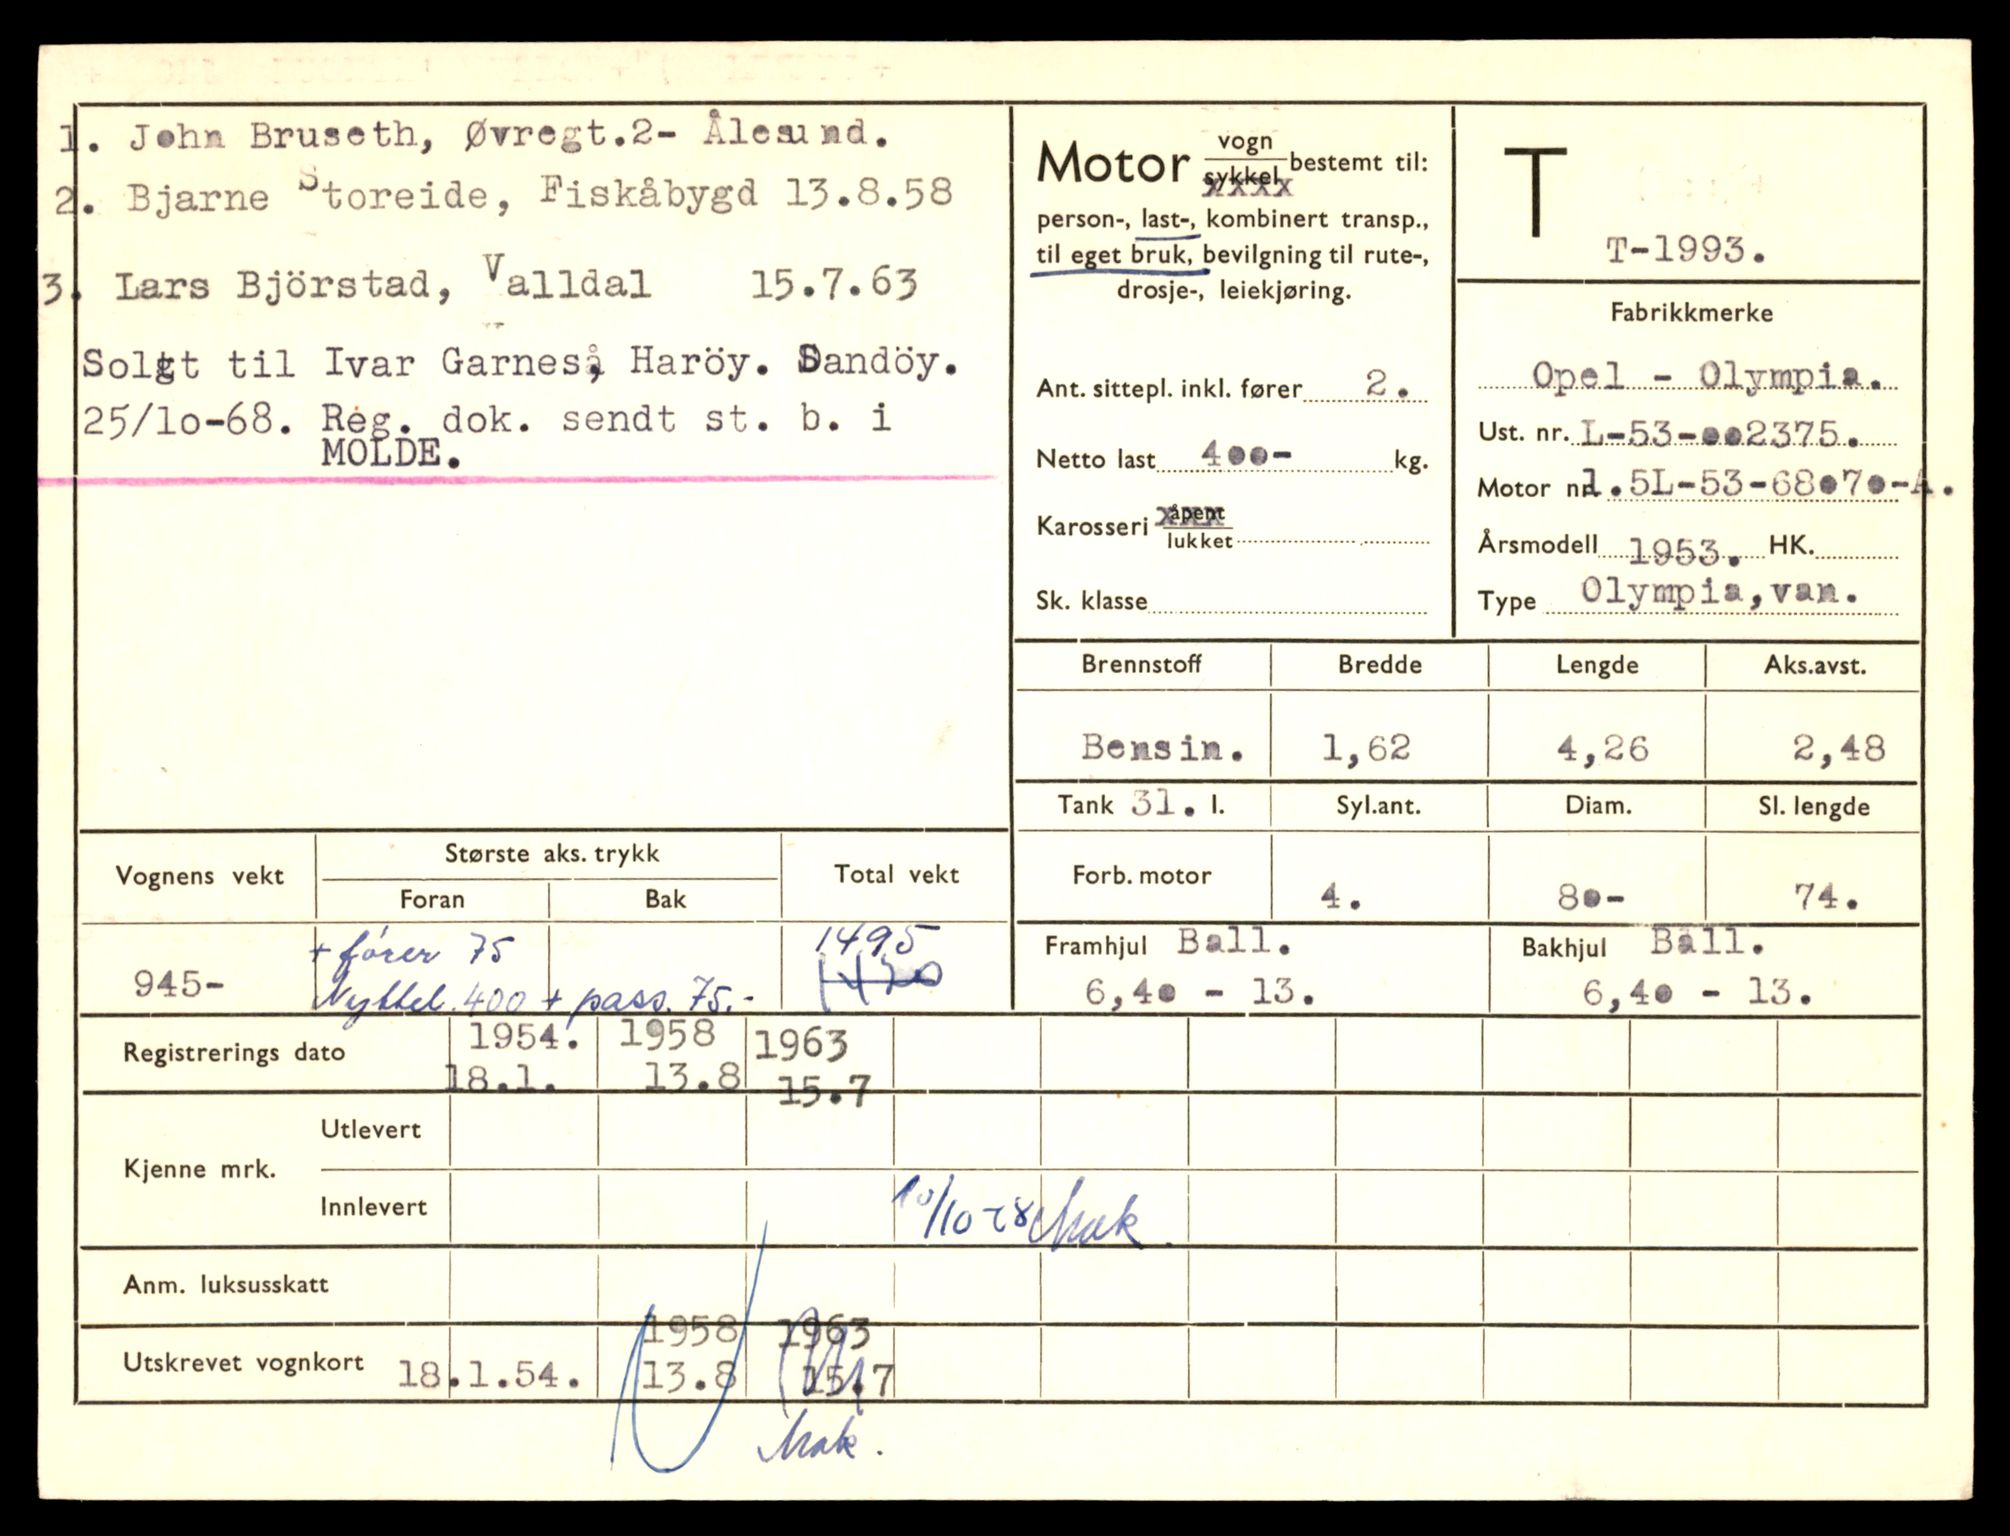 1. John Bruseth, Øvregt.2- Ålesund.
2. Bjarne Storeide, Fiskåbygd 13.8.58
3. Lars Björstad, Valldal 15.7.63
Solgt til Ivar Garneså, Haröy. Sandöy.
25/10-68. Reg. dok. sendt st. b. i
MOLDE.
Motor vogn/sykkel bestemt til:
xxxx
person-, last-, kombinert transp.,
til eget bruk, bevilgning til rute-,
drosje-, leiekjøring.
Ant. sittepl. inkl. fører 2.
Netto last 400- kg.
Karosseri åpent
xxx
lukket
Sk. klasse
T
T-1993.
Fabrikkmerke
Opel - Olympia.
Ust. nr. L-53-002375.
Motor nr. 1.5L-53-68070-A.
Årsmodell 1953. HK.
Type Olympia,van.
Brennstoff Bredde Lengde Aks.avst.
Bensin. 1,62 4,26 2,48
Tank 31. l. Syl.ant. Diam. Sl. lengde
Forb. motor 4. 80- 74.
Framhjul Ball. Bakhjul Ball.
6,40 - 13. 6,40 - 13.
Vognens vekt Største aks. trykk Total vekt
Foran Bak
+ fører 75 1495
945- Nyttel. 400 + pass. 75.- 1420
Registrerings dato 1954. 1958 1963
18.1. 13.8 15.7
Utlevert
Kjenne mrk.
Innlevert 10/10-78
Anm. luksusskatt
1958 1963
Utskrevet vognkort 18.1.54. 13.8 15.7